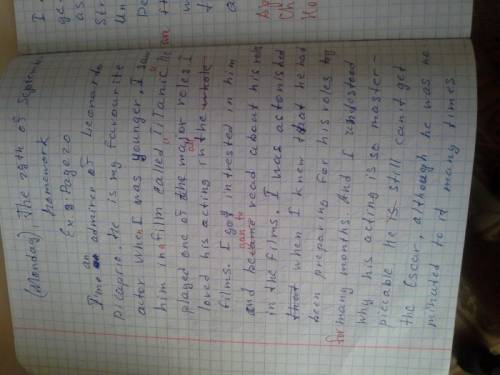 I
ge
as
str
Un
(Monday), The 29th of September
Homework
Ex. 9 Page 20
an
I'me admirer of Leonardo
Dicaprio. He is my favourite
actor when I was younger, I saw
him in film called "Titanic". He
played one of the major roles. I
loved his acting in the whole
all
films. I got intrested in him
and became read about his role
in the films. I was astonished
that when I knew that he had
been preparing for his roles by
for many months And I understood
why his acting is so master-
piecable He is still can't get
the Oscar, although he was no
minated to it many times